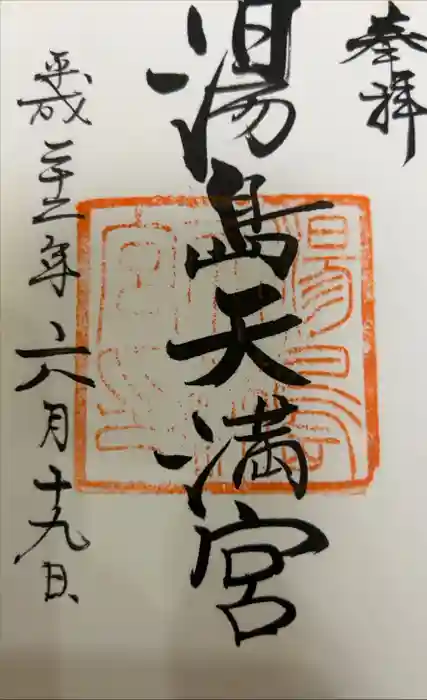 奉拝
湯島天満宮
平成二十三年六月十九日